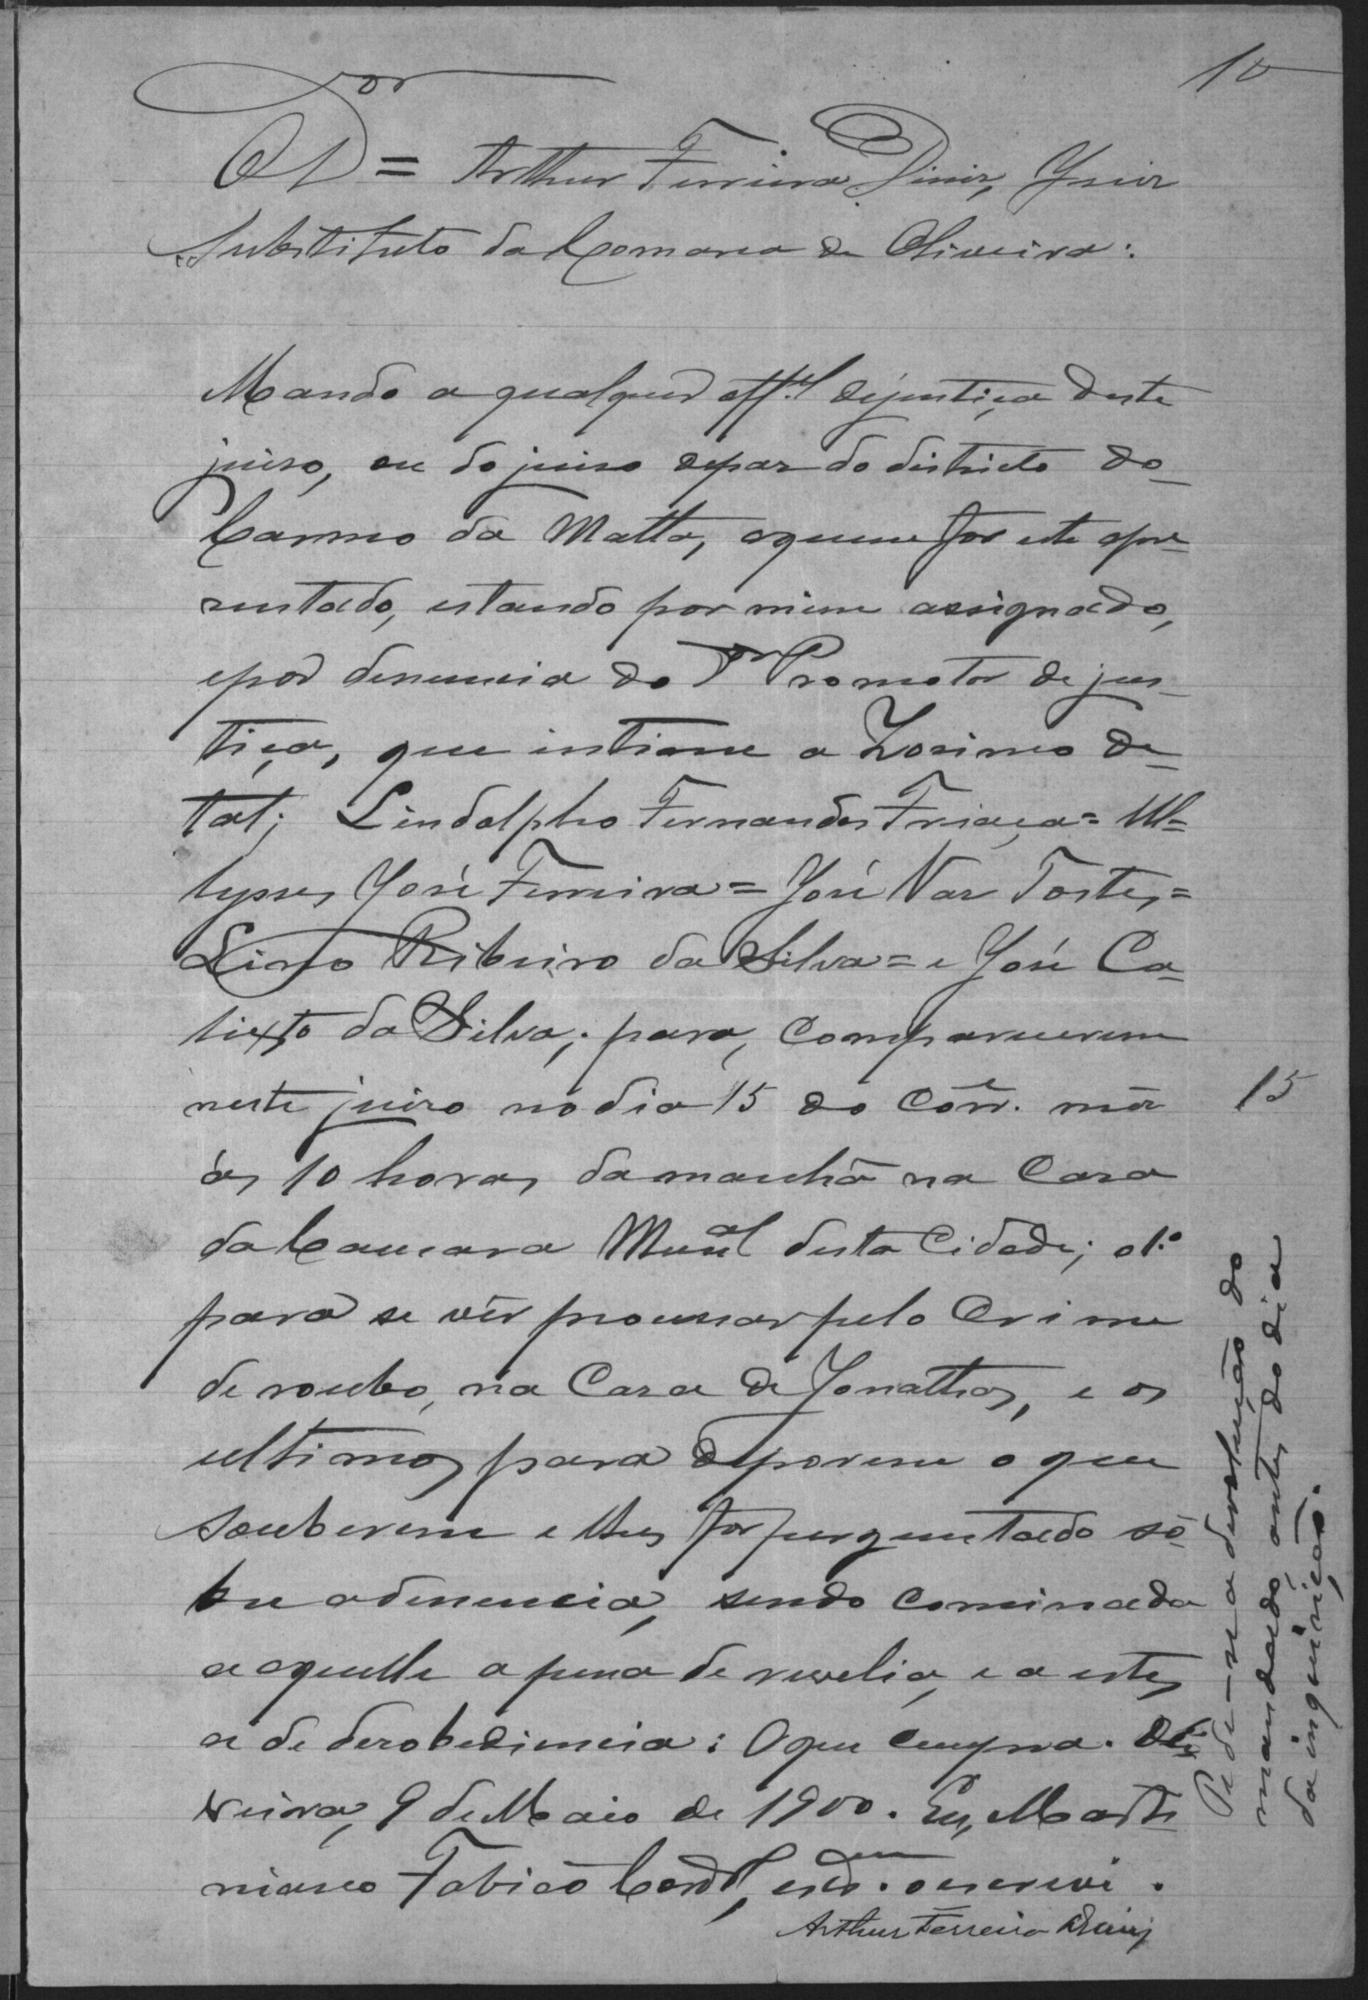 10
O Dor = Arthur Ferreira Diniz, Juiz
Substituto da Comarca de Oliveira:
Mando a qualquer offal dejustiça deste
juiso, ou do juiso depaz do districto do
Carmo da Matta, aquem for este apre-
sentado, estando por mim assignado,
epor denuncia do Dor Promotor de jus-
tiça, que intime a Zosimo de
tal; Lindolpho Fernandes Friaça = Ul=
lysses José Ferreira = José Vaz Tostes =
Lino Ribeiro da Silva = e José Ca-
lixto da Silva; para, comparecerem
neste juizo nodia 15 do corre. mez
15
ás 10 horas da manhã na Casa
da Camara Munal desta Cidade; o 1.o
para se vêr processar pelo Crime
de roubo, na Casa de Jonathas, e os
ultimos para deporem o que
souberem e lhes for perguntado so-
bre adenuncia, sendo cominada
a aquelle a pena de revelia, e a estes
a de desobediencia: O que cumpra. Oli-
veira, 9 de Maio de 1900. Eu, Marti-
niano Fabião Cardl, escram. o escrevi.
Arthur Ferreira Diniz
Pede-se a devolução do
mandado, antes do dia
da inquirição.